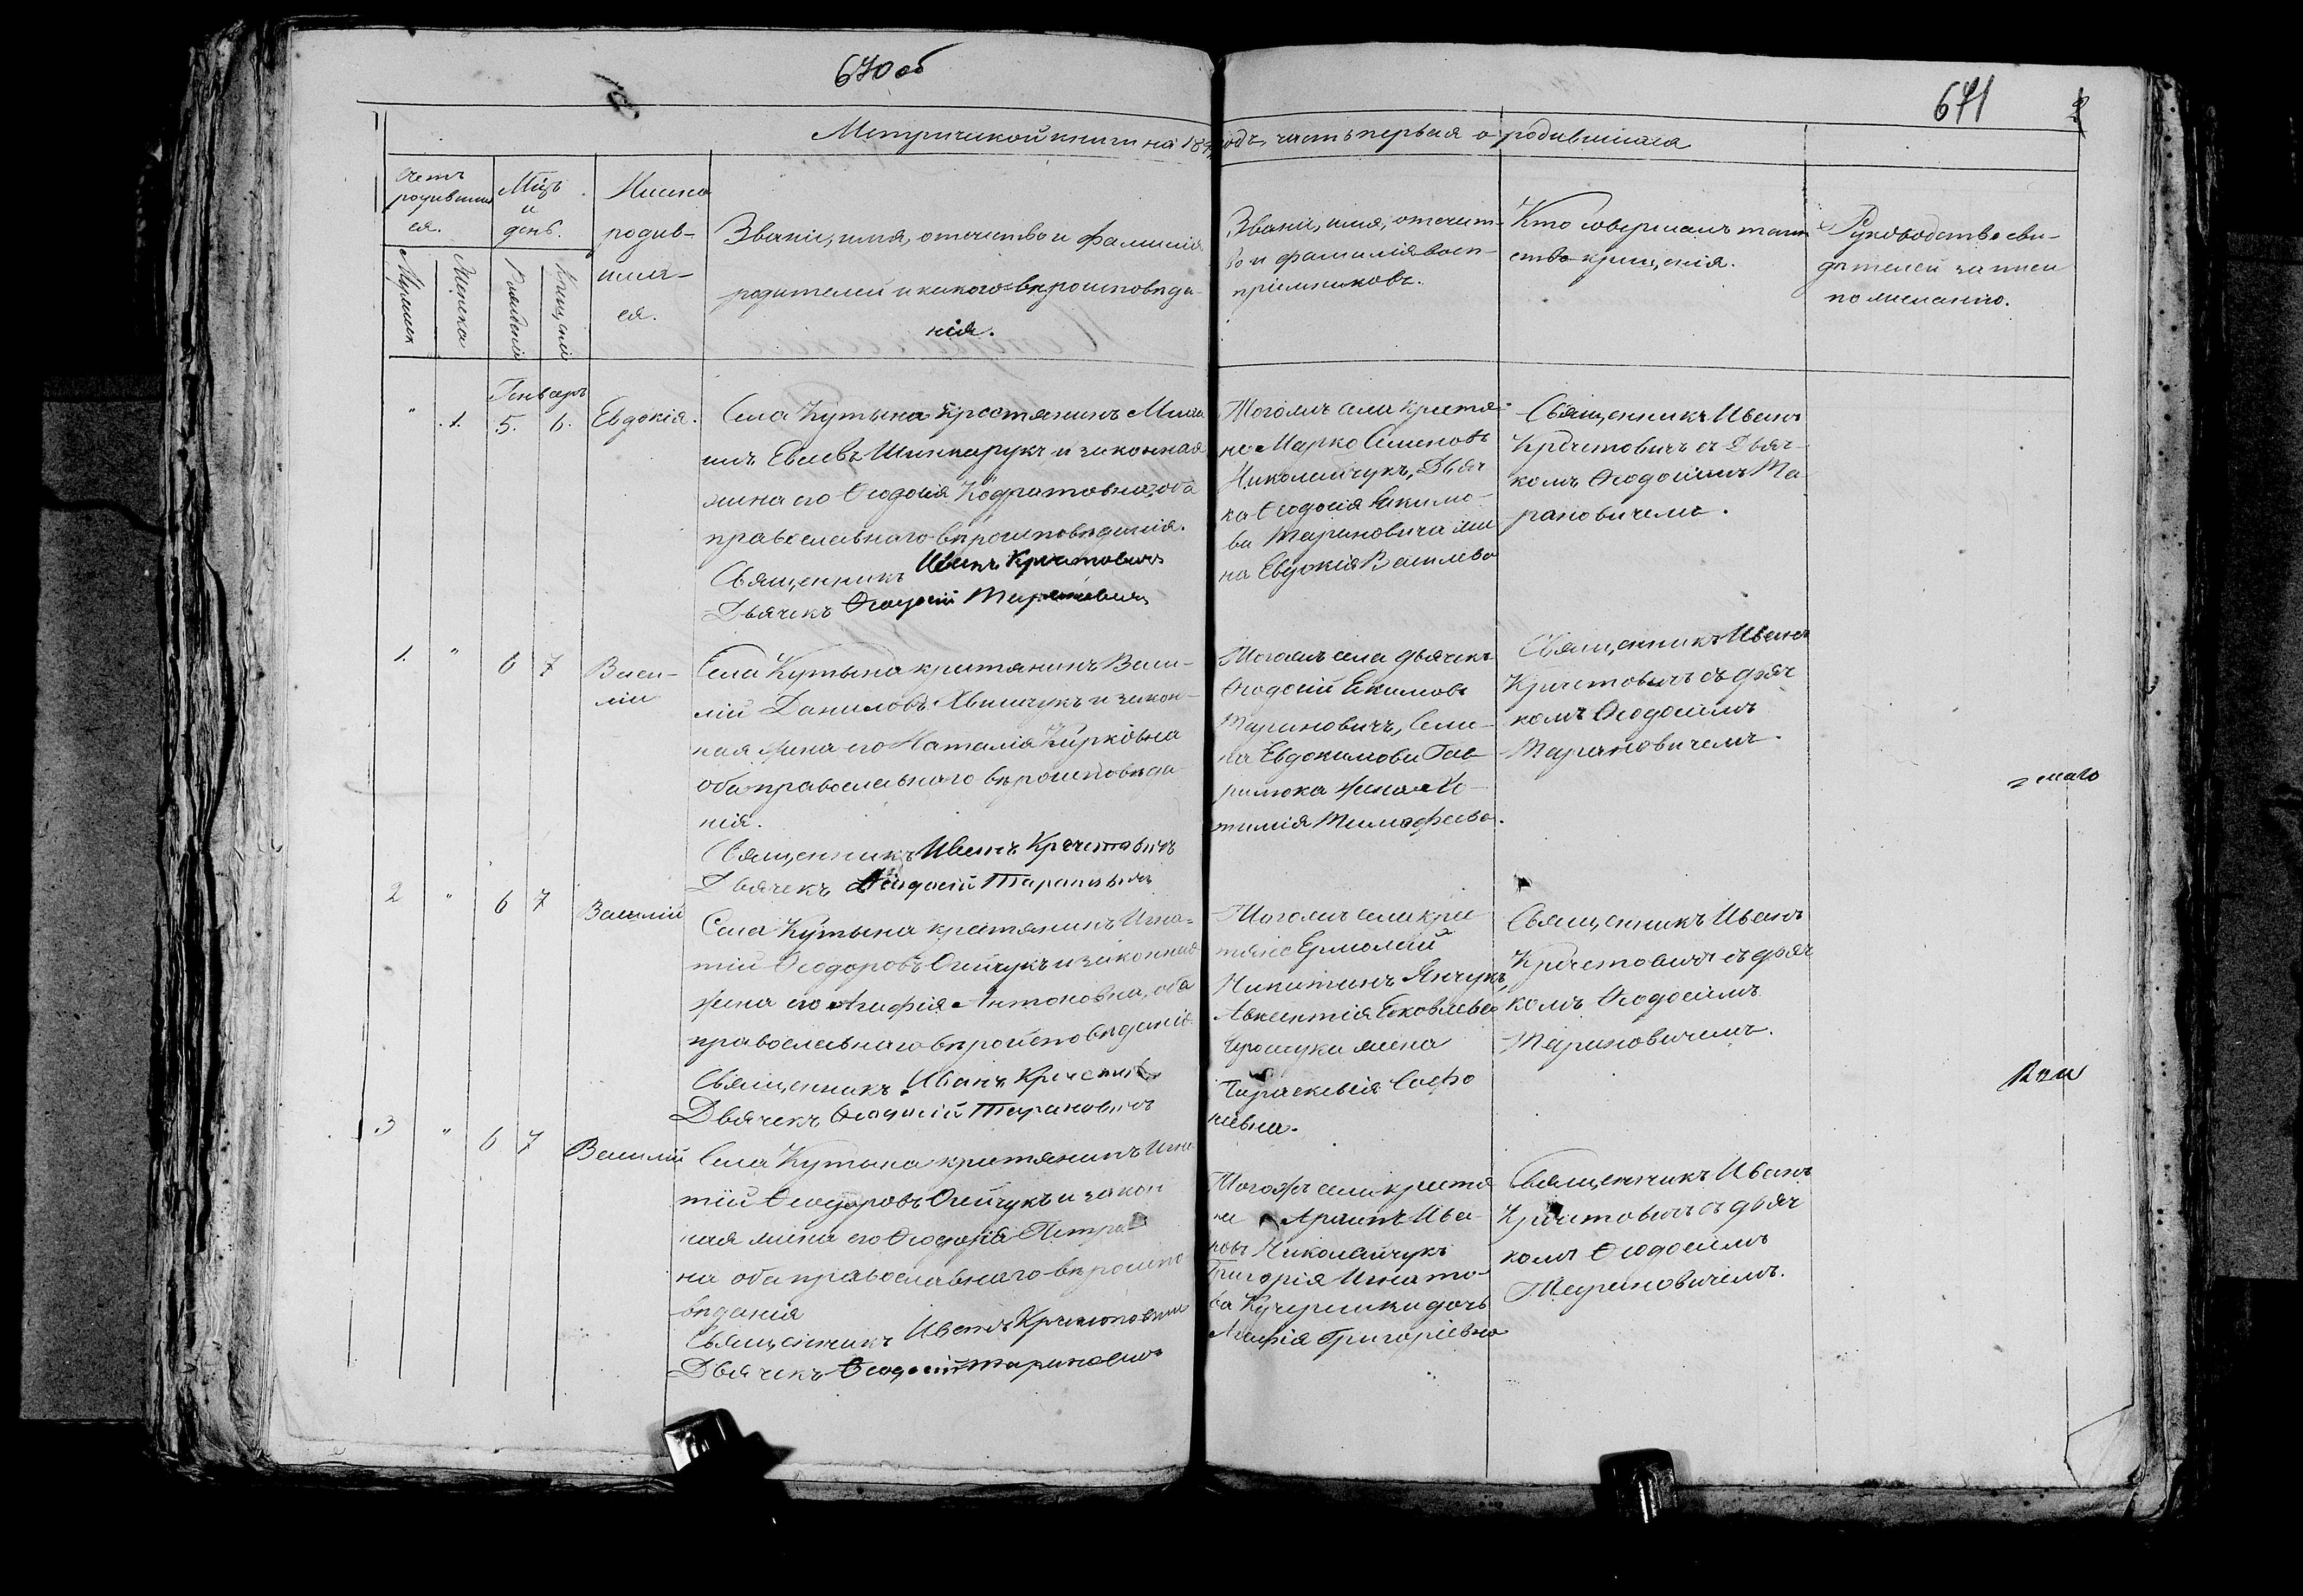 670 об
671
Метрической книги на 18 одъ, часть первая о родившихся
Счетъ родившихся.
Мцъ и день.
Имена родившихся.
Званіе, имя, отечество и фамилія родителей и какого вероисповеданія.
Званіе, имя, отечество и фамилія воспріемниковъ.
Кто совершалъ таинство крещенія.
Руководство свидетелей записи по желанію.
Мужеска
Женска
Рожденія
Крещенія
Генварь
" 1. 5. 6. Евдокія.
Села Кутына крестянинъ
Евсевъ Шинкарукъ и законная
жена его Ѳеодосія Кодратовна, оба
православнаго вероисповеданія.
Священникъ Иванъ Кречетовичъ
Дьячекъ Ѳеодосій Тарановичъ
Тогожъ села крестя-
не Марко Семеновъ
Николайчукъ, Дьяч
ка Ѳеодосія Екимо-
ва Тарановича же
на Евдокія Василева
Священникъ Иванъ
Кречетовичъ съ Дьяч-
комъ Ѳеодосіемъ Та-
рановичемъ.
1. " 6 7 Васи-
лій
Села Кутына крестянинъ Васи-
лій Даниловъ и закон-
ная жена его Наталія Кирковна
оба православнаго вероисповеда-
нія.
Священникъ Иванъ Кречетовичъ
Дьячекъ Ѳеодосій Тарановичъ
Тогожъ села дьячекъ
Ѳеодосій Екимовъ
Тарановичъ, Семе-
на Евдокимова Гав-
рилюка жена
Тимофеева.
Священникъ Иванъ
Кречетовичъ съ дьяч
комъ Ѳеодосіемъ
Тарановичемъ.
2 " 6 7 Василій
Села Кутына крестянинъ Игна-
тій Ѳеодоровъ Оейчукъ и законная
жена его Агафія Антоновна, оба
православнаго вероисповеданія
Священникъ Иванъ Кречетов
Дьячекъ Ѳеодосій Тарановичъ
Тогожъ села крес
тяне Ермолай
Никитинъ Янчукъ,
Авксентія Яковлева
жена
Параскевія Софо
невна.
Священникъ Иванъ
Кречетовичъ съ дьяч
комъ Ѳеодосіемъ
Тарановичемъ.
3 " 6 7 Василій
Села Кутына крестянинъ Игна
тій Ѳеодоровъ Оейчукъ и закон
ная жена его Ѳеодосія Петро
на оба православнаго вероиспо
веданія
Священникъ Иванъ Кречетовичъ
Дьячекъ Ѳеодосій Тарановичъ
Тогожъ села крестя
не Архипъ Ива-
новъ Николайчукъ
Григорія Игнато-
ва дочь
Агафія Григоріевна
Священникъ Иванъ
Кречетовичъ съ дьяч
комъ Ѳеодосіемъ
Тарановичемъ.